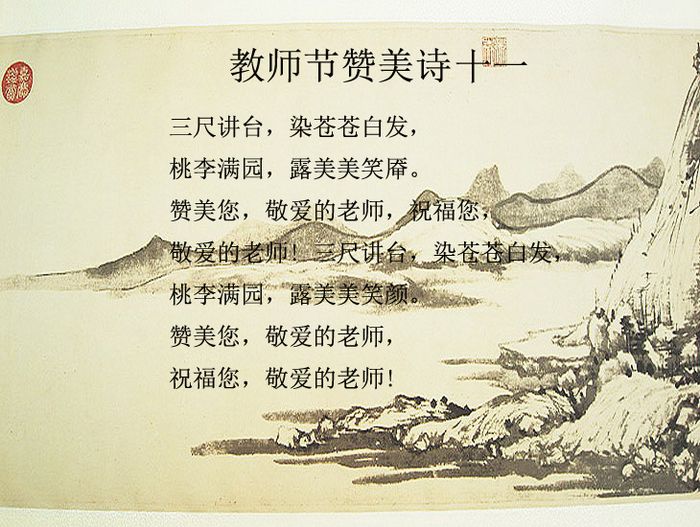 教师节赞美诗十一
三尺讲台，染苍苍白发，
桃李满园，露美美笑厣。
赞美您，敬爱的老师，祝福您，
敬爱的老师! 三尺讲台，染苍苍白发，
桃李满园，露美美笑颜。
赞美您，敬爱的老师，
祝福您，敬爱的老师!